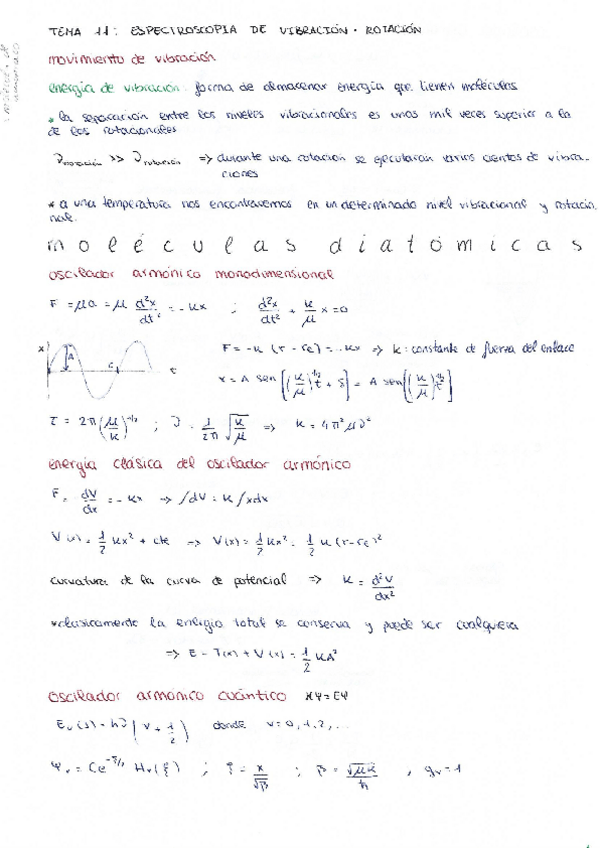 TEMA 11: ESPECTROSCOPIA DE VIBRACIÓN - ROTACIÓN
movimiento de vibración
energía de vibración: forma de almacenar energía que tienen moléculas
* la separación entre los niveles vibracionales es unas mil veces superior a la
de los rotacionales
ν vibración >> ν rotación => durante una rotación se ejecutarán varios cientos de vibra-
ciones
* a una temperatura nos encontraremos en un determinado nivel vibracional y rotacio
nal.
moléculas diatómicas
oscilador armónico monodimensional
F = μa = μ d²x/dt² = -kx ; d²x/dt² + k/μ x = 0
x A t
F = -k (r - re) = -kx => k: constante de fuerza del enlace
x = A sen[(k/μ)^1/2 t + δ] = A sen[(k/μ)^1/2 t]
τ = 2π(μ/k)^1/2 ; ν = 1/2π √k/μ => k = 4π²μν²
energía clásica del oscilador armónico
F = - dV/dx = -kx => ∫dV = k∫xdx
V(x) = 1/2 kx² + cte => V(x) = 1/2 kx² = 1/2 k (r-re)²
curvatura de la curva de potencial => k = d²V/dx²
* clásicamente la energía total se conserva y puede ser cualquiera
=> E = T(x) + V(x) = 1/2 kA²
oscilador armónico cuántico HΨ=EΨ
Ev (J) = hν(v + 1/2) donde v = 0, 1, 2, ...
Hv(ξ) ; ξ = x/√β ; β = √μk/ħ , gv = 1